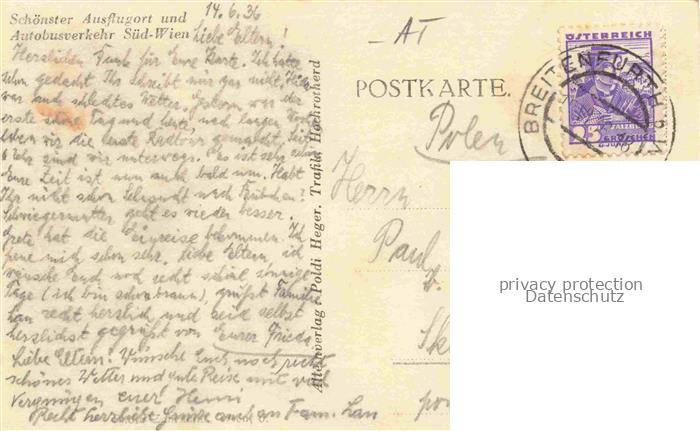 Schönster Ausflugort und
Autobusverkehr Süd-Wien
14.6.36
Liebe Eltern!
Herzlichen Dank für Eure Karte. Ich hatte
schon gedacht Ihr schreibt mir gar nicht. Hier
war auch schlechtes Wetter. Gestern war der
erste schöne Tag und heute, nach langer
haben wir die erste Radtour gemacht. Seit
6 Uhr sind wir unterwegs. Es ist sehr schön
Eure Zeit ist nun auch bald um. Habt
Ihr nicht schon Sehnsucht nach
Schwiegermutter geht es wieder besser.
Grete hat die Einreise bekommen. Ich
freue mich schon sehr, liebe Eltern, ich
wünsche Euch noch recht schöne sonnige
Tage (ich bin schon braun), grüßt Familie
Lan recht herzlich und seid selbst
herzlichst gegrüßt von Eurer Frieda
Liebe Eltern! Wünsche Euch noch recht
schönes Wetter und gute Reise mit viel
Vergnügen euer Heini
Recht herzliche Grüße auch an Fam. Lan
Alleinverlag: Poldi Heger, Trafik Hochrotherd
AT
POSTKARTE.
ÖSTERREICH
SALZBURG
25
GROSCHEN
BREITENFURTH
Polen
Herrn
Paul
b.
Sk
privacy protection
Datenschutz